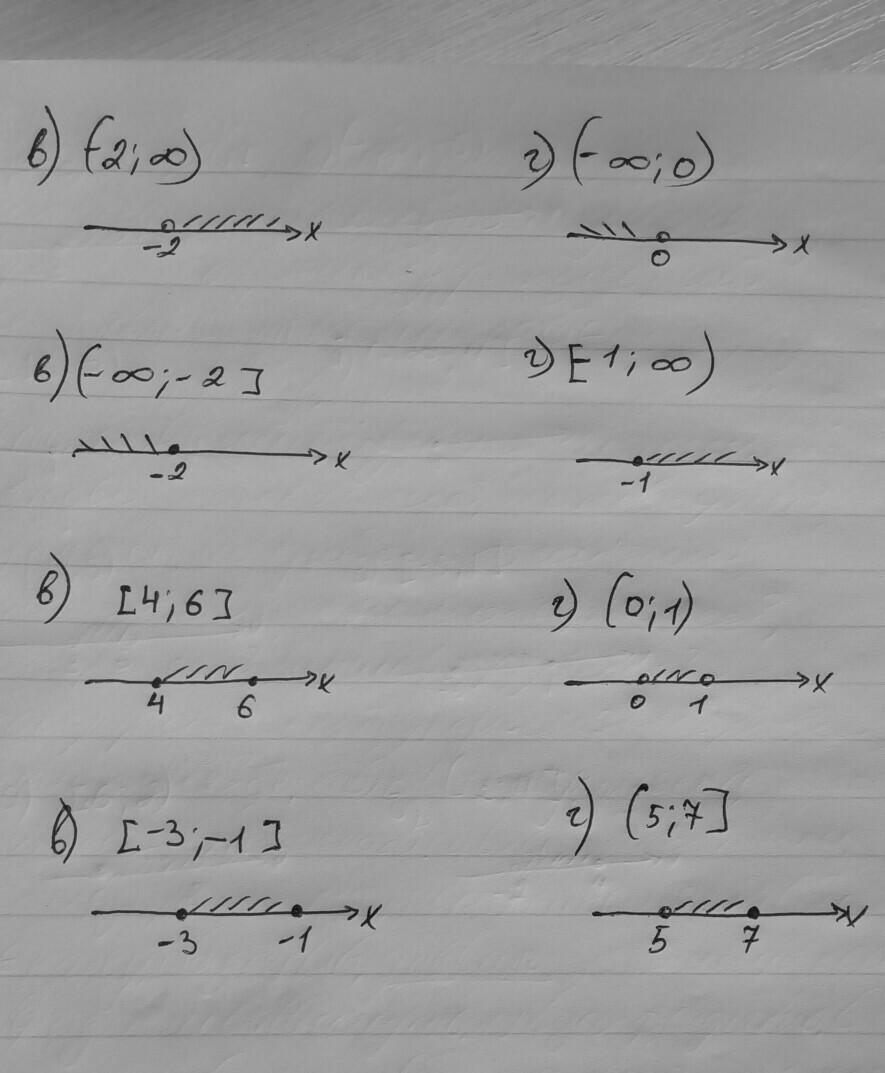 в) (-2; ∞) г) (-∞; 0)
x x
-2 0
в) (-∞; -2] г) [-1; ∞)
x x
-2 -1
в) [4; 6] г) (0; 1)
x x
4 6 0 1
в) [-3; -1] г) (5; 7]
x x
-3 -1 5 7